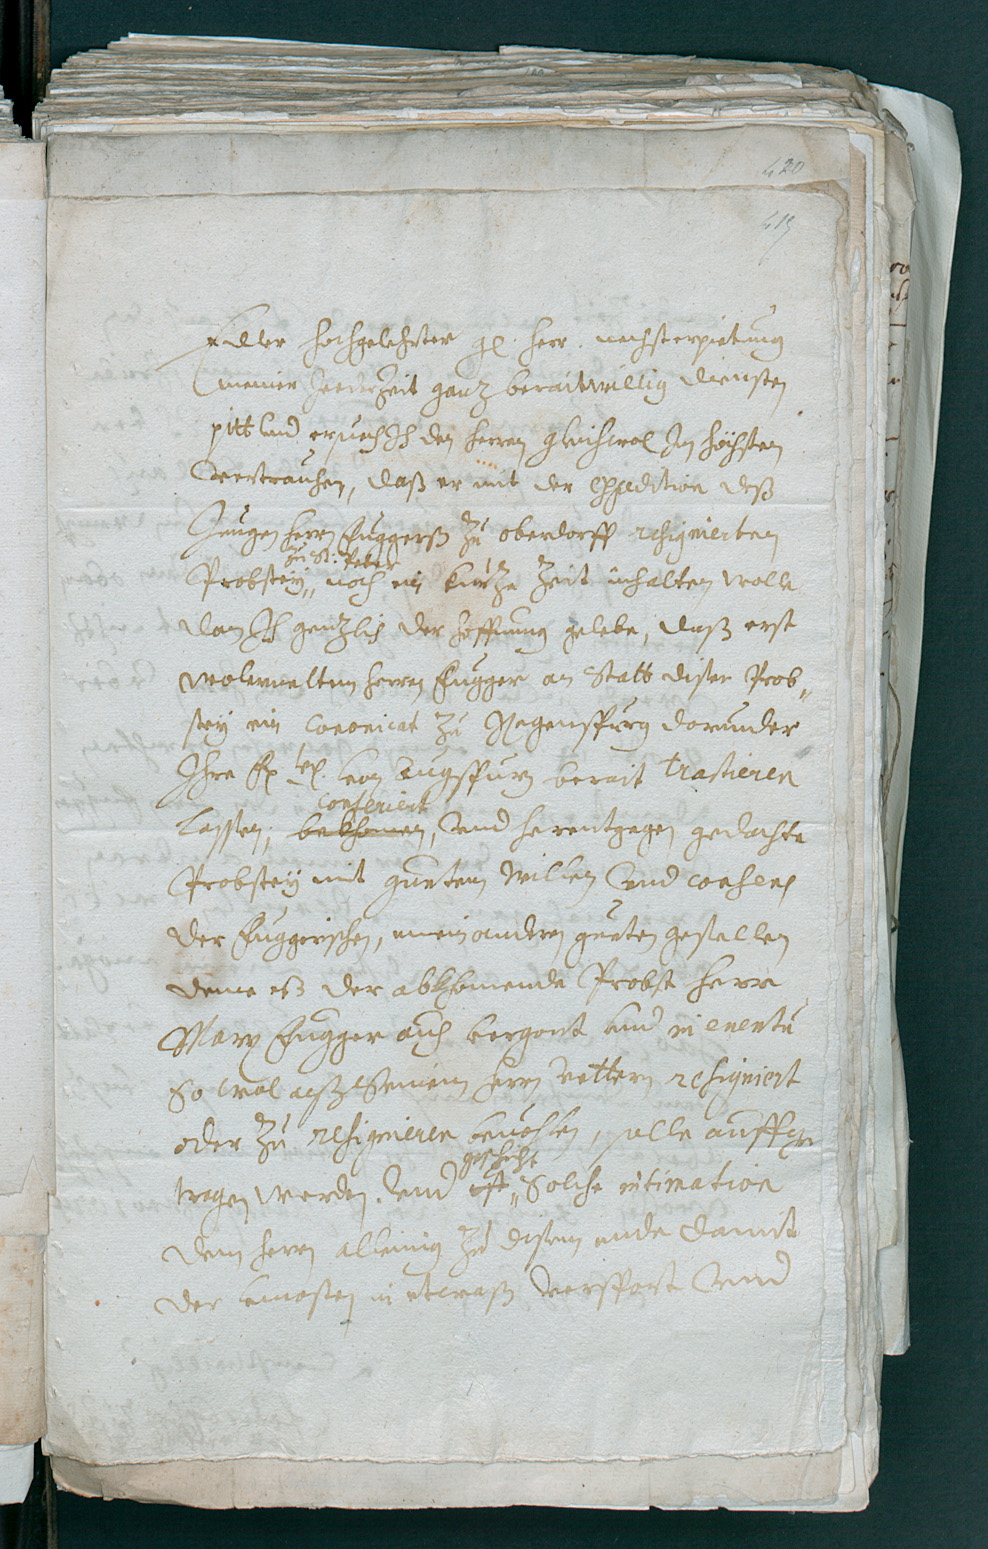 420
419
Edler hochgelehrter gl. herr. nechst erpietung
meiner Jeederzeit ganz beraitwillig diensten
pitt und ersuech Ich den herren gleichwol Jn höchsten
vertrauhen, daß er mit der expedition deß
Jungen herrn Fuggerß zu oberdorff resignierten
zu St: Peter
Probstey noch ein kurze Zeit inhalten wolle
dan Ich genzlich der hoffnung gelebe, daß erst
wolermeltem herrn Fugger an statt diser Prob„
stey ein canonicat zu Regenspurg darunder
Ihre von Augspurg berait tractieren
conferiert
lassen, bekhomen, und herentgegen gedachte
Probstey mit guetem willen und consens
der Fuggerischen, einem anderen gueten gesellen
deme eß der abkhomende Probst herr
Marx Fugger auch vergont und in eventu
so wol alß seinem herrn vettern resigniert
oder zu resignieren bevohlen, solle auffge
geschicht
tragen werden. und ist solche intimation
dem herrn allainig zu disem ende damit
der uncosten in etwaß verspart und